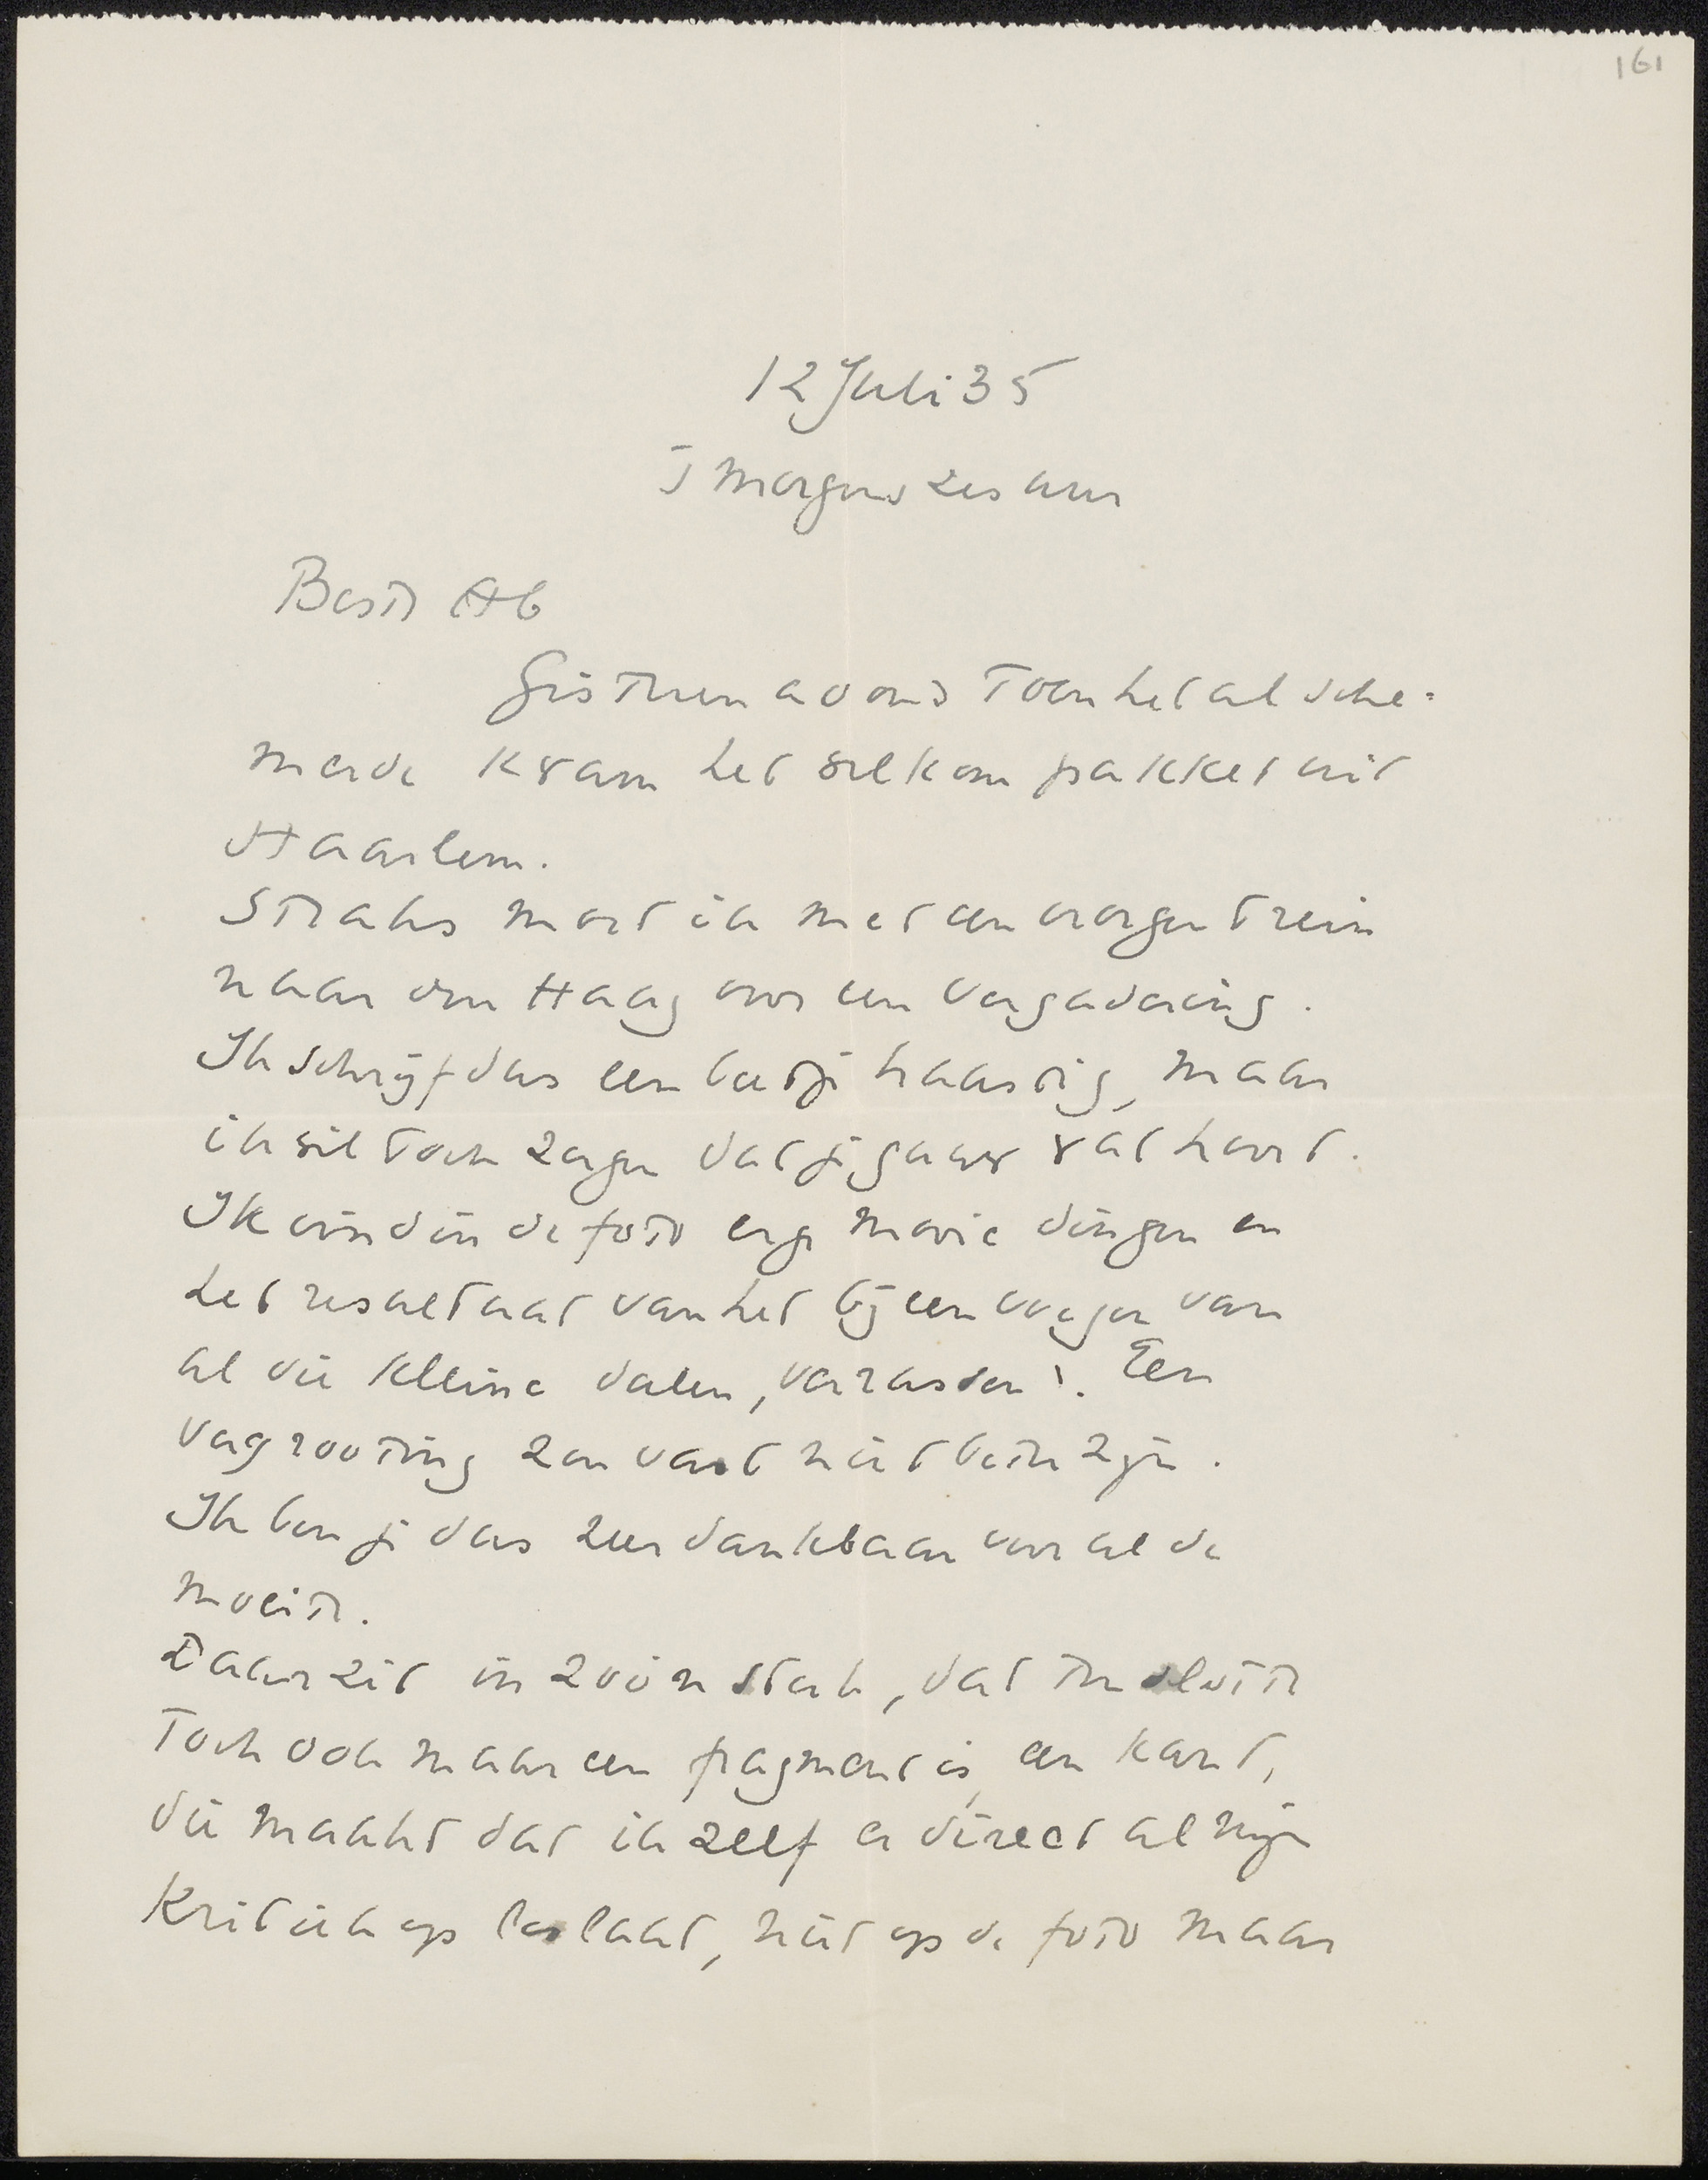 161
12 Juli 35
's morgens zes uur
Beste Ab
Gisteren avond toen het al sche-
merde kwam het welkom pakket uit
Haarlem.
Straks moet ik met een vroege trein
naar den Haag voor een vergadering.
Ik schrijf dus een beetje haastig, maar
ik wil toch zeggen dat je gauw wat hoort.
Ik vind in de foto erg mooie dingen en
het resultaat van het bijeen voegen van
al die kleine delen, verrassend. Een
vergrooting zou vast niet beter zijn.
Ik ben je dus zeer dankbaar voor al de
moeite.
Daar zit in zoo'n stuk, dat ten slotte
toch ook maar een fragment is, een kant,
die maakt dat ik zelf er direct al mijn
Kritiek op los laat, niet op de foto maar